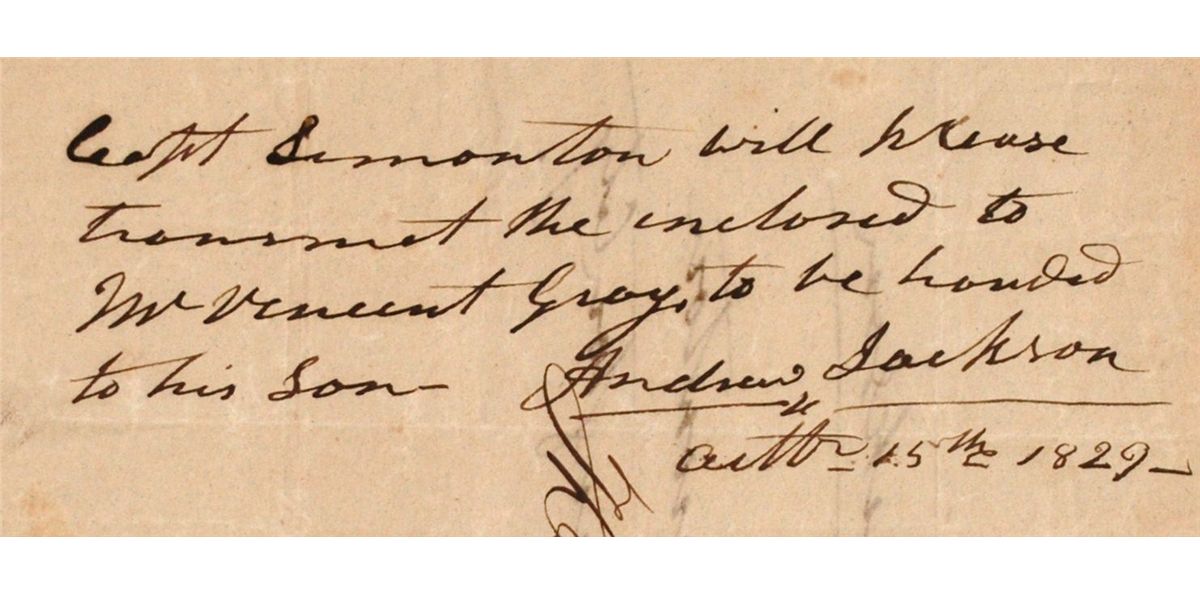 Capt Simonton will please
transmit the enclosed to
Mr Vincent Gray, to be handed
to his Son—
Andrew Jackson
Octbr 15th 1829—